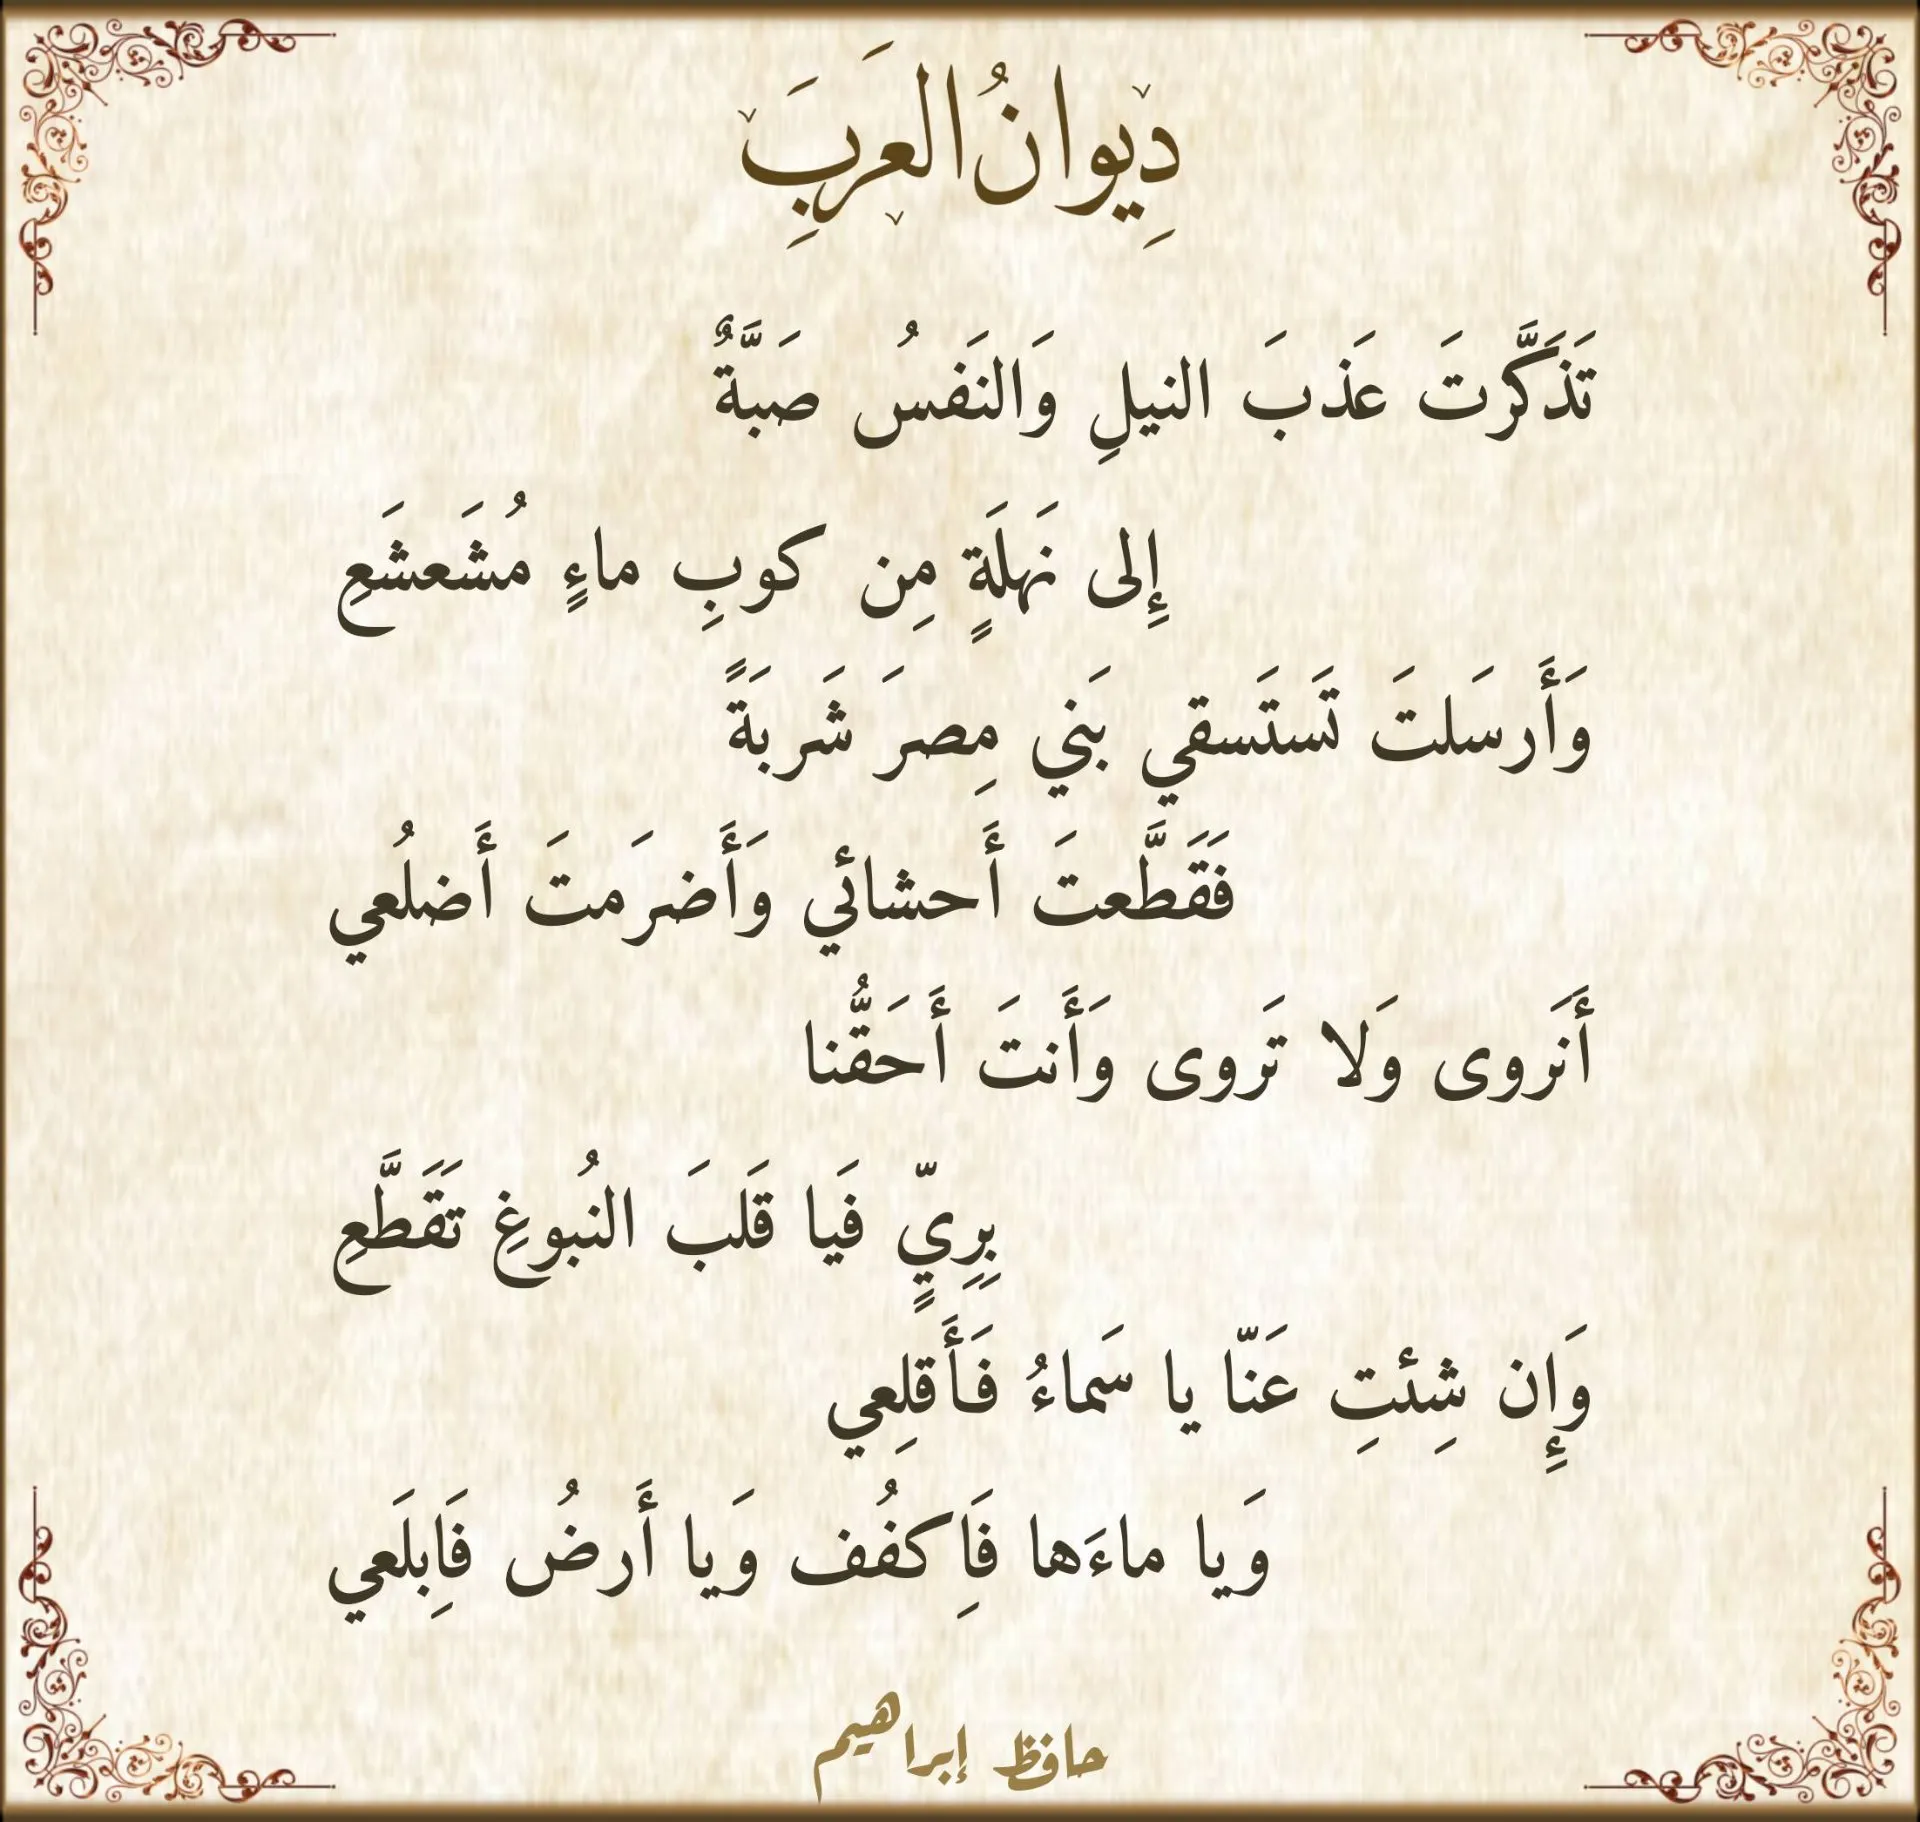 دِيوانُ العَرَبَِ
تَذَكَّرتَ عَذبَ النيلِ وَالنَفسُ صَبَّةٌ
إِلى نَهلَةٍ مِن كوبِ ماءٍ مُشَعشَعِ
وَأَرسَلتَ تَستَسقي بَني مِصرَ شَربَةً
فَقَطَّعتَ أَحشائي وَأَضرَمتَ أَضلُعي
أَنَروى وَلا تَروى وَأَنتَ أَحَقُّنا
بِرِيٍّ فَيا قَلبَ النُبوغِ تَقَطَّعِ
وَإِن شِئتِ عَنّا يا سَماءُ فَأَقلِعي
وَيا ماءَها فَاِكفُف وَيا أَرضُ فَاِبلَعي
حافظ إبراهيم